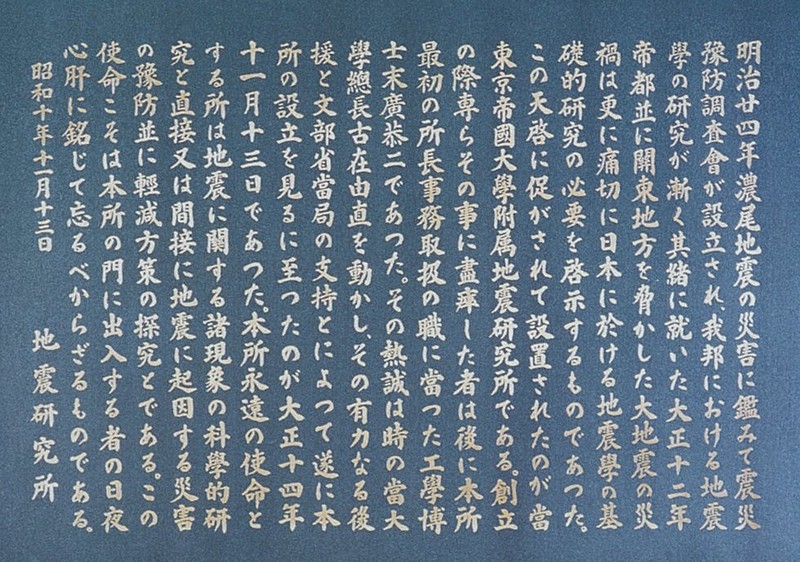 明治廿四年濃尾地震の災害に鑑みて震災
豫防調査會が設立され、我邦における地震
學の研究が漸く其緒に就いた大正十二年
帝都並に關東地方を脅かした大地震の災
禍は更に痛切に日本に於ける地震學の基
礎的研究の必要を啓示するものであつた。
この天啓に促がされて設置されたのが當
東京帝國大學附属地震研究所である。創立
の際専らその事に盡瘁した者は後に本所
最初の所長事務取扱の職に當つた工學博
士末廣恭二であつた。その熱誠は時の當大
學總長古在由直を動かし、その有力なる後
援と文部省當局の支持とによつて遂に本
所の設立を見るに至つたのが大正十四年
十一月十三日であつた。本所永遠の使命と
する所は地震に関する諸現象の科學的研
究と直接又は間接に地震に起因する災害
の豫防並に輕減方策の探究とである。この
使命こそは本所の門に出入する者の日夜
心肝に銘じて忘るべからざるものである。
昭和十年十一月十三日
地震研究所